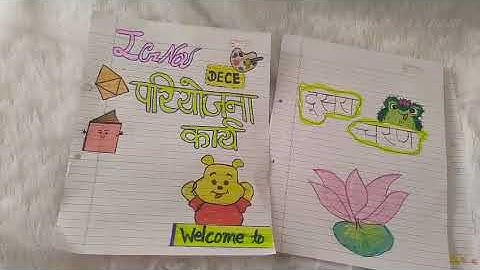 IGNOU
DECE
परियोजना
कार्य
Welcome to
दूसरा
चरण